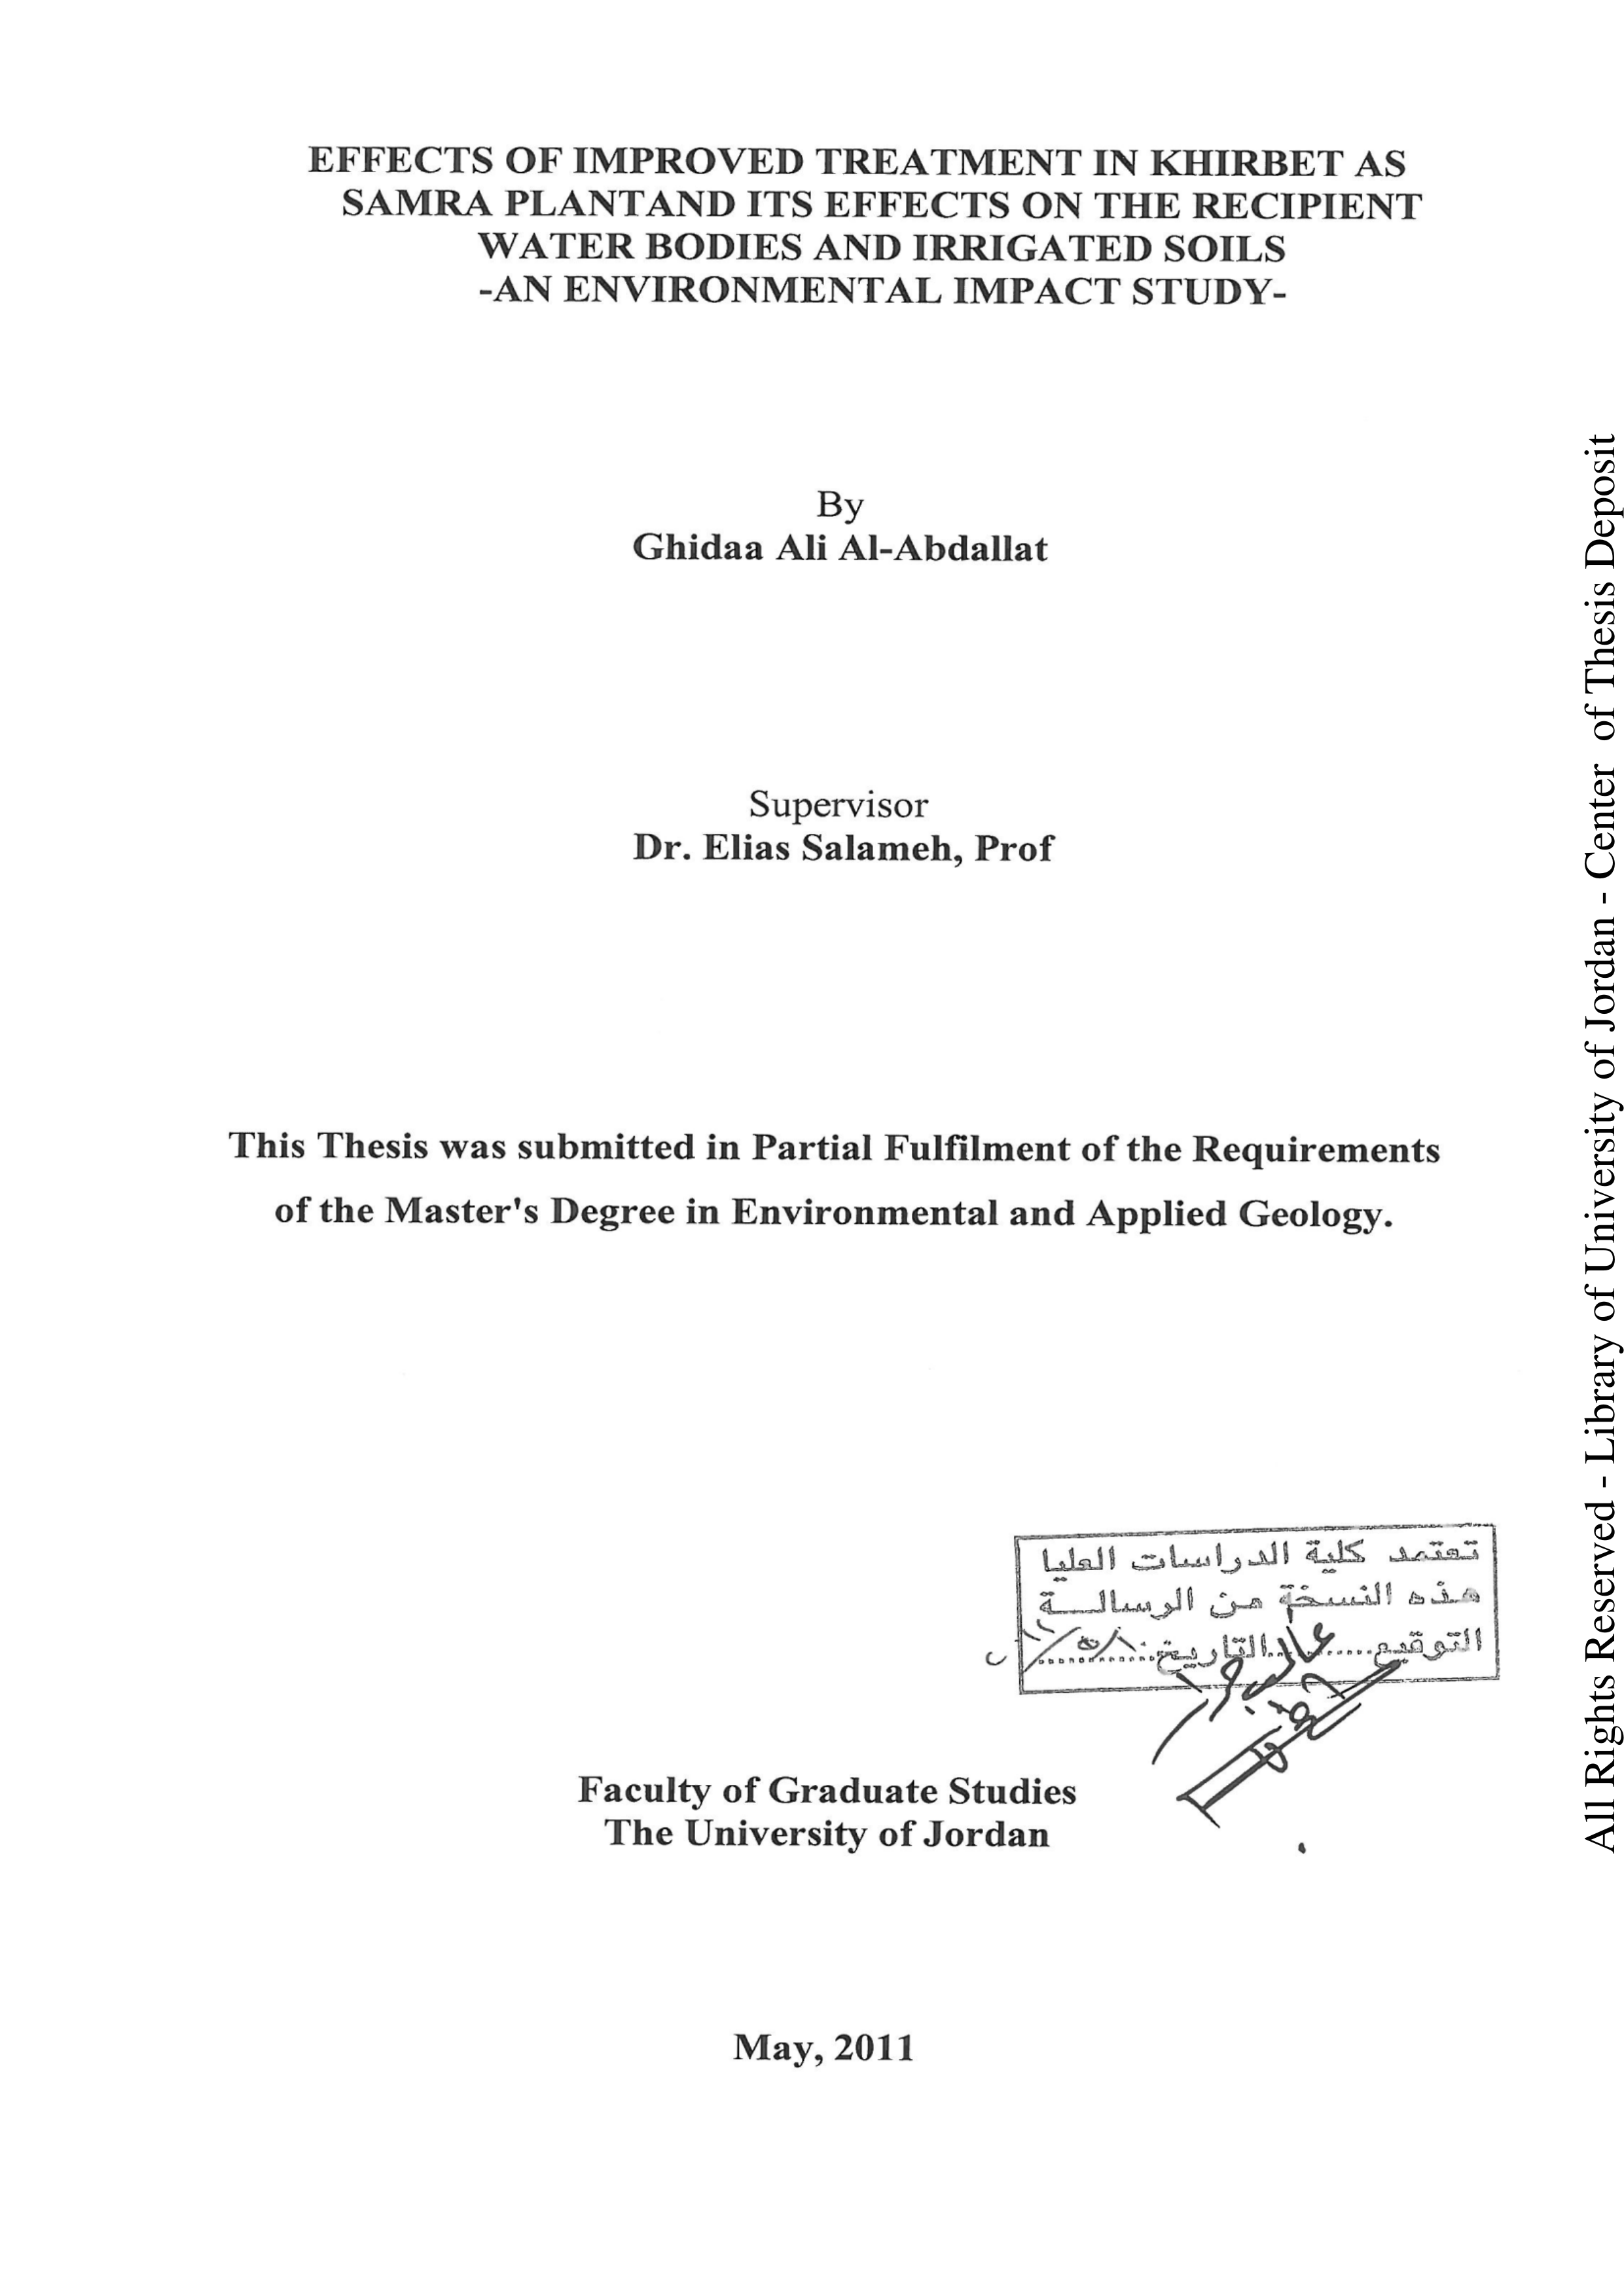 EFFECTS OF IMPROVED TREATMENT IN KHIRBET AS
SAMRA PLANTAND ITS EFFECTS ON THE RECIPIENT
WATER BODIES AND IRRIGATED SOILS
-AN ENVIRONMENTAL IMPACT STUDY-
By
Ghidaa Ali Al-Abdallat
Supervisor
Dr. Elias Salameh, Prof
This Thesis was submitted in Partial Fulfilment of the Requirements
of the Master's Degree in Environmental and Applied Geology.
تعتمد كلية الدراسات العليا
هذه النسخة من الرسالـــة
التوقيع............التاريخ:............
Faculty of Graduate Studies
The University of Jordan
May, 2011
All Rights Reserved - Library of University of Jordan - Center of Thesis Deposit